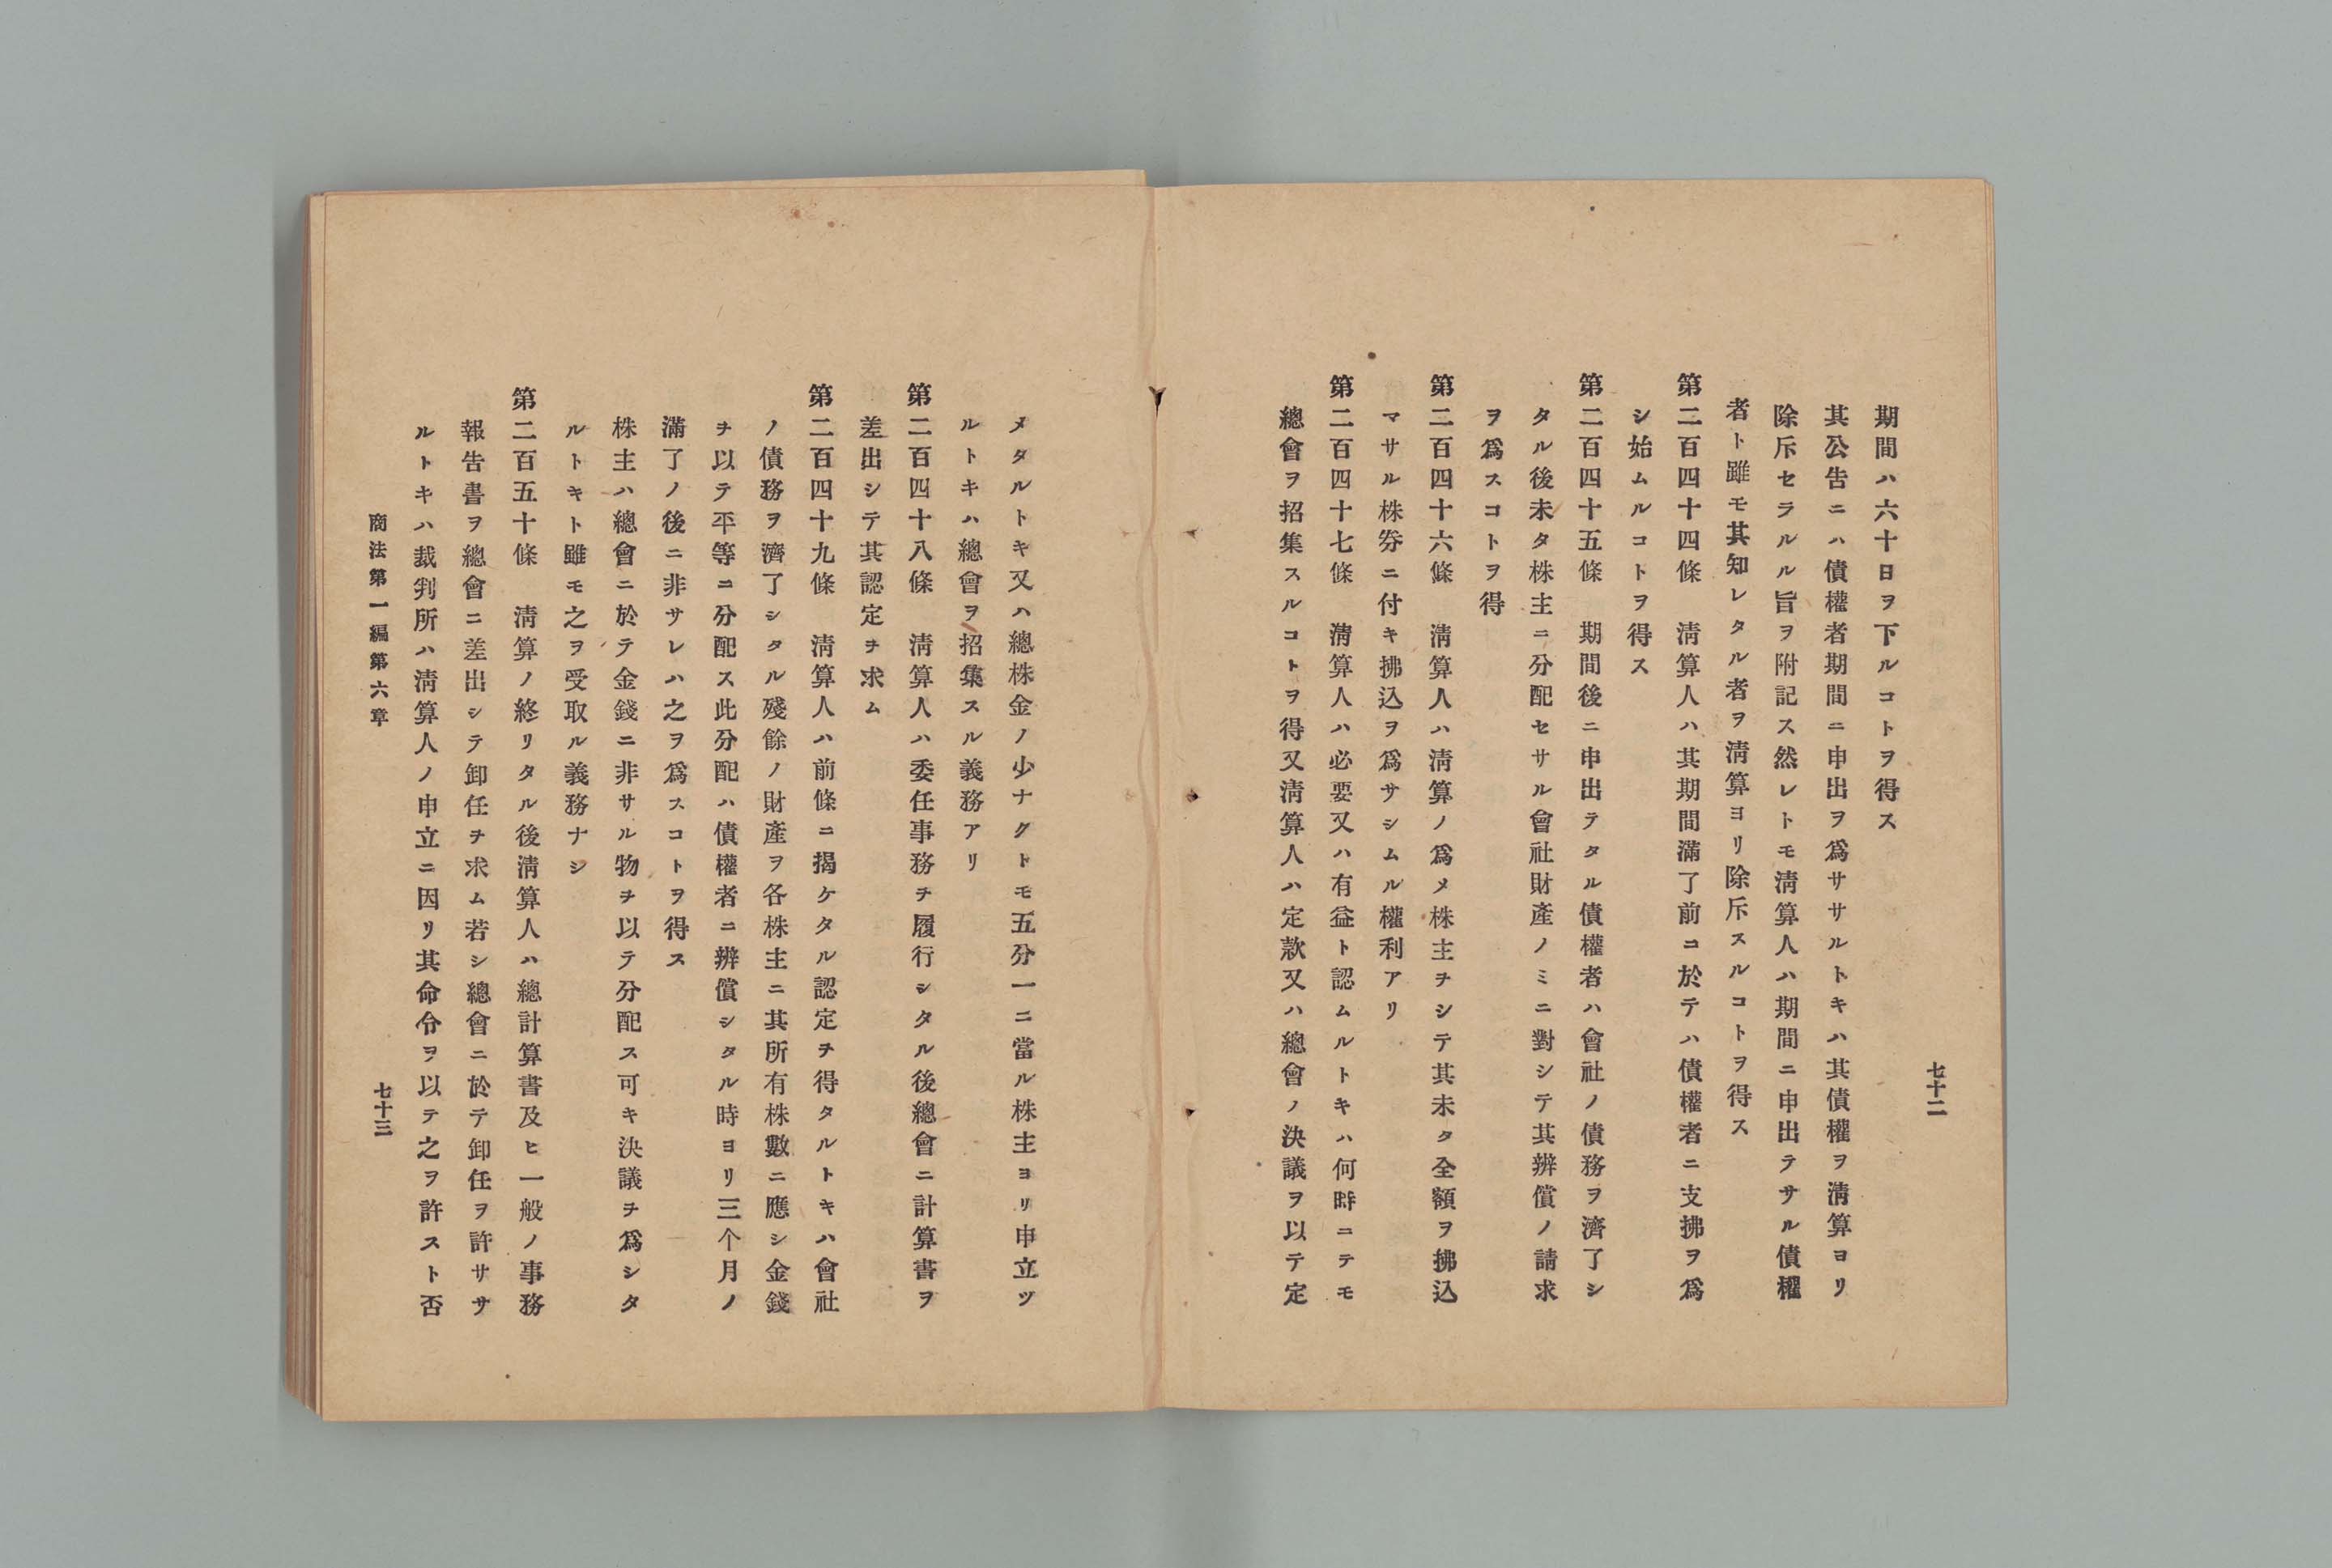 七十二
期間ハ六十日ヲ下ルコトヲ得ス
其公告ニハ債權者期間ニ申出ヲ爲サヽルトキハ其債權ヲ淸算ヨリ
除斥セラルル旨ヲ附記ス然レトモ淸算人ハ期間ニ申出テサル債權
者ト雖モ其知レタル者ヲ淸算ヨリ除斥スルコトヲ得ス
第二百四十四條　淸算人ハ其期間滿了前ニ於テハ債權者ニ支拂ヲ爲
シ始ムルコトヲ得ス
第二百四十五條　期間後ニ申出テタル債權者ハ會社ノ債務ヲ濟了シ
タル後未タ株主ニ分配セサル會社財產ノミニ對シテ其辨償ノ請求
ヲ爲スコトヲ得
第二百四十六條　淸算人ハ淸算ノ爲メ株主ヲシテ其未タ全額ヲ拂込
マサル株劵ニ付キ拂込ヲ爲サシムル權利アリ
第二百四十七條　淸算人ハ必要又ハ有益ト認ムルトキハ何時ニテモ
總會ヲ招集スルコトヲ得又淸算人ハ定款又ハ總會ノ決議ヲ以テ定
メタルトキ又ハ總株金ノ少ナクトモ五分一ニ當ル株主ヨリ申立ツ
ルトキハ總會ヲ招集スル義務アリ
第二百四十八條　淸算人ハ委任事務ヲ履行シタル後總會ニ計算書ヲ
差出シテ其認定ヲ求ム
第二百四十九條　淸算人ハ前條ニ揭ケタル認定ヲ得タルトキハ會社
ノ債務ヲ濟了シタル殘餘ノ財產ヲ各株主ニ其所有株數ニ應シ金錢
ヲ以テ平等ニ分配ス此分配ハ債權者ニ辨償シタル時ヨリ三个月ノ
滿了ノ後ニ非サレハ之ヲ爲スコトヲ得ス
株主ハ總會ニ於テ金錢ニ非サル物ヲ以テ分配ス可キ決議ヲ爲シタ
ルトキト雖モ之ヲ受取ル義務ナシ
第二百五十條　淸算ノ終リタル後淸算人ハ總計算書及ヒ一般ノ事務
報告書ヲ總會ニ差出シテ卸任ヲ求ム若シ總會ニ於テ卸任ヲ許サヽ
ルトキハ裁判所ハ淸算人ノ申立ニ因リ其命令ヲ以テ之ヲ許スト否
商法第一編第六章
七十三